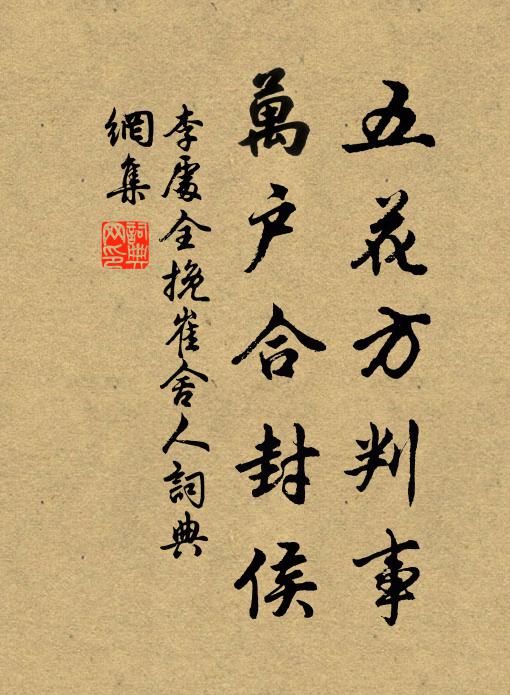 五花方判事
萬户合封侯
李處全挽崔舍人詞典
網集
詞典网印